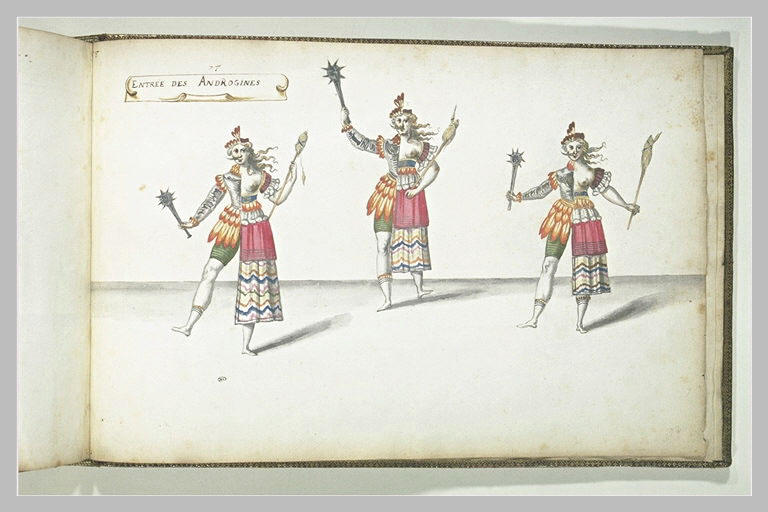 27
ENTRÉE DES ANDROGINES